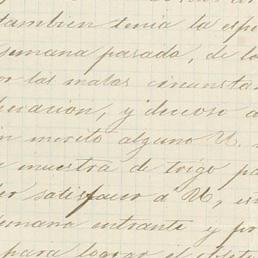 tambien tenia la espe
semana pasada, de lo
or las malas circunsta
peracion, y deseoso a
in merito alguno U.
a muestra de trigo pa
er satisfacer a U, en
semana entrante y pr
para lograr el objeto